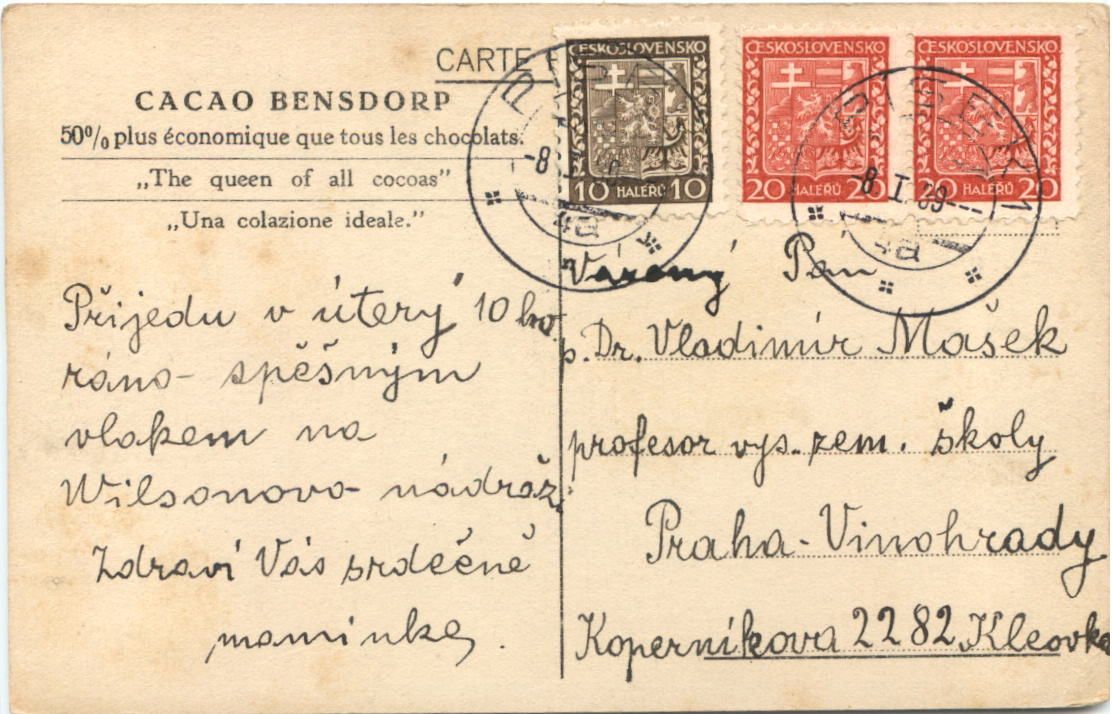 CARTE
CACAO BENSDORP
50% plus économique que tous les chocolats.
„The queen of all cocoas”
„Una colazione ideale.”
ČESKOSLOVENSKO
10 HALÉŘŮ 10
ČESKOSLOVENSKO
20 HALÉŘŮ 20
ČESKOSLOVENSKO
20 HALÉŘŮ 20
-8
4a
8. I. 39
4a
Přijedu v úterý 10 ho.
ráno - spěšným
vlakem na
Wilsonovo nádraží
Zdraví Vás srdečně
maminka.
Vážený Pan
p. Dr. Vladimír Mašek
profesor vys. zem. školy
Praha - Vinohrady
Koperníkova 2282 Kleovka